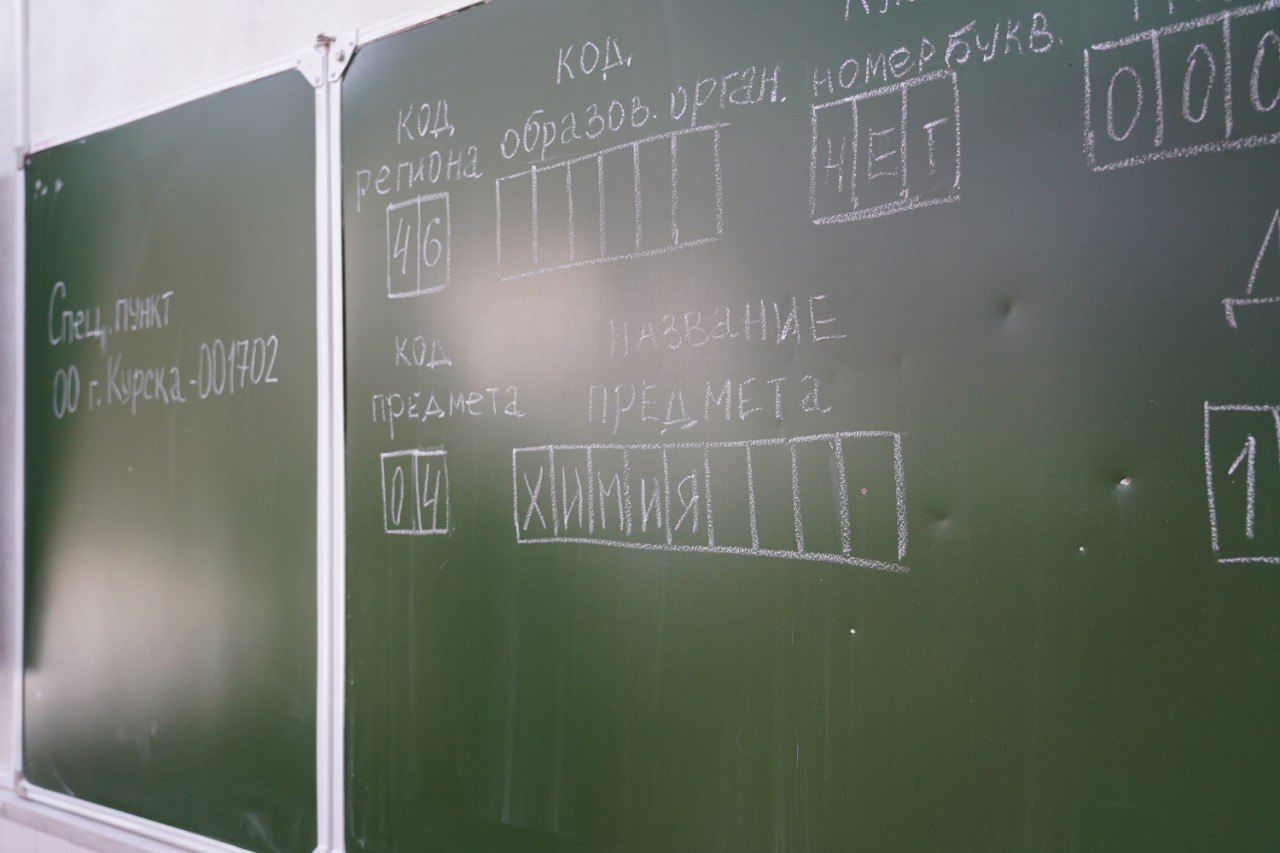 Спец. пункт
00 г. Курска - 001702
код региона
46
код образов. орган.
номер букв.
НЕТ
000
код предмета
04
НАЗВАНИЕ ПРЕДМЕТА
ХИМИЯ
1